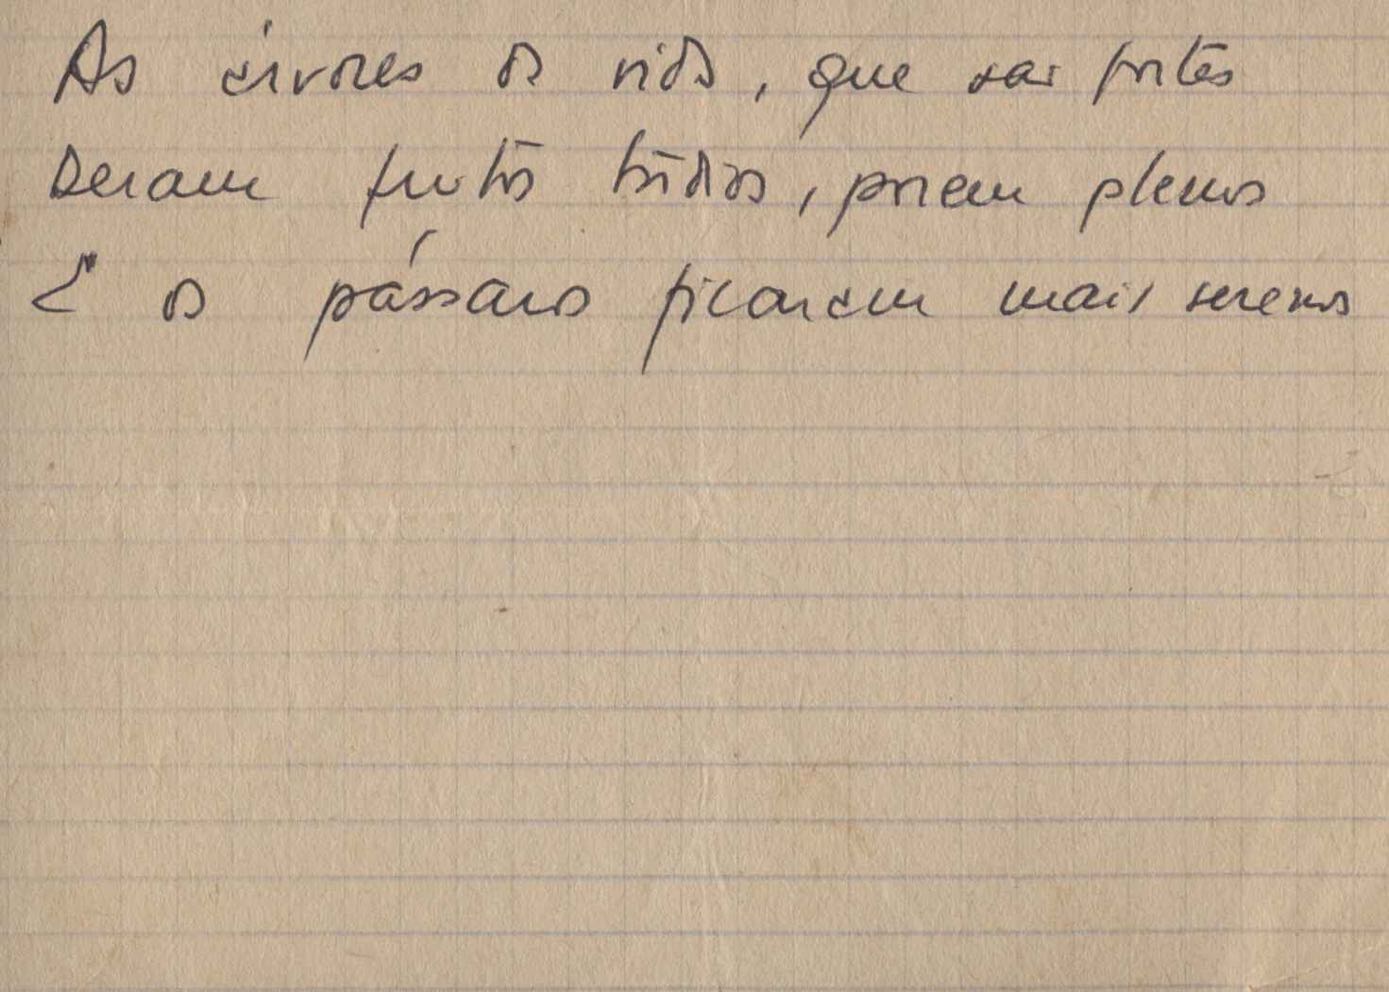 As árvores da vida, que são fortes
Deram frutos tardios, porem plenos
E os pássaros ficaram mais serenos